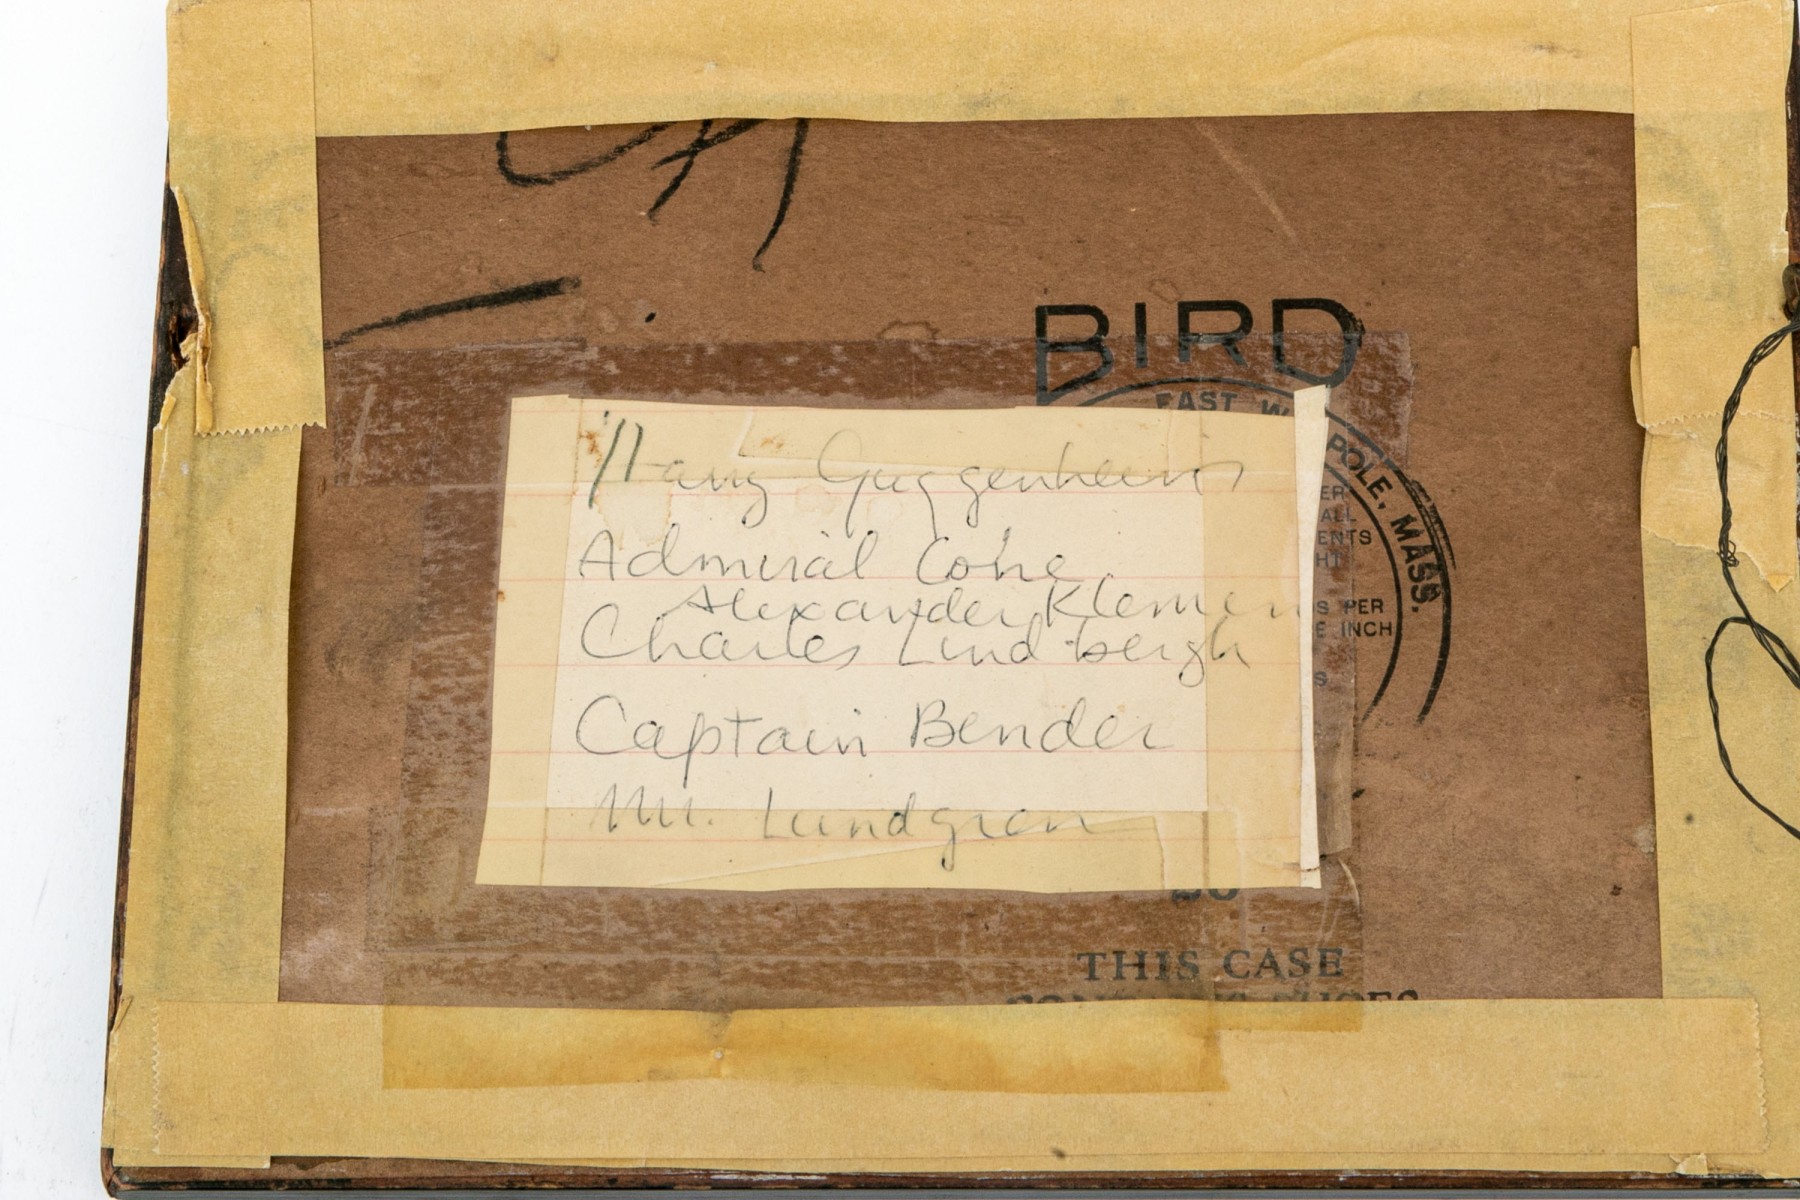 BIRD
EAST W POLE, MASS.
ER
ALL
ENTS
HT
S PER
E INCH
S
Harry Guggenheim
Admiral Cone
Alexander Klemen
Charles Lindbergh
Captain Bender
Mr. Lundgren
THIS CASE